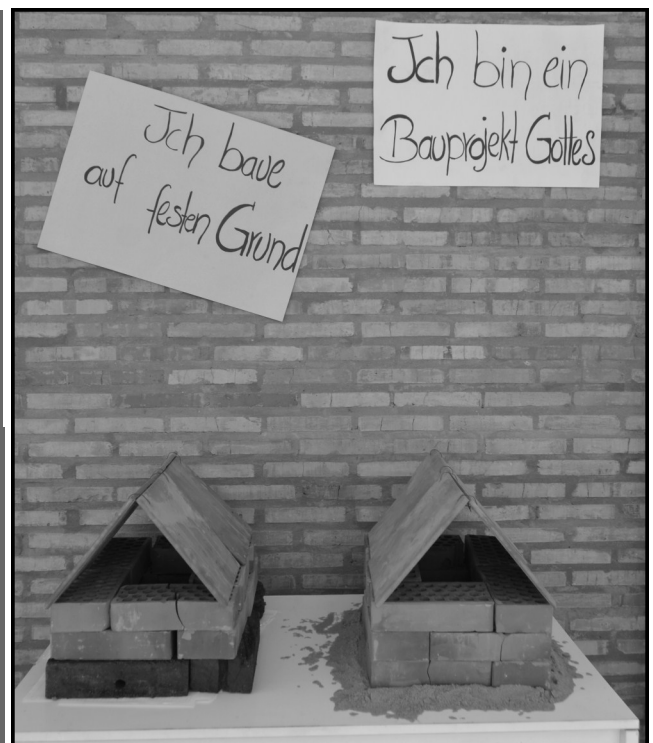 Ich baue
auf festen Grund
Ich bin ein
Bauprojekt Gottes